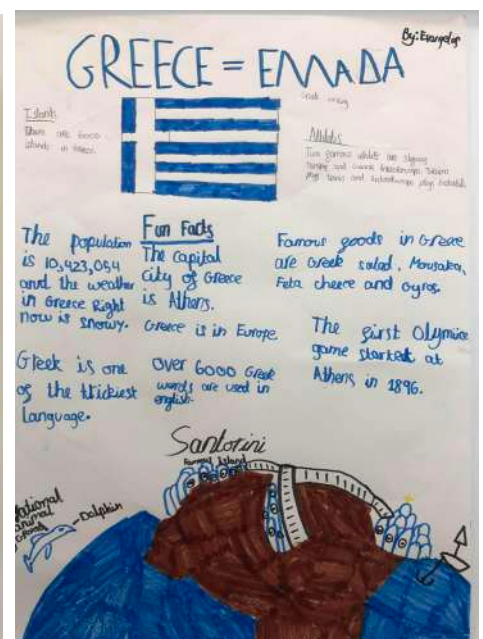 By: Evangelos
GREECE = EΛΛAΔA
Islands
There are 6000
islands in Greece.
Athletes
Two famous athlete are
and
plays tennis and plays
The population
is 10,423,054
and the weather
in Greece Right
now is snowy.
Greek is one
of the trickiest
Language.
Fun Facts
The capital
city of Greece
is Athens.
Greece is in Europe
over 6000 Greek
words are used in
english.
Famous goods in Greece
are Greek salad, Mousaka,
Feta cheece and gyros.
The first Olymics
game started at
Athens in 1896.
Santorini
Famous Island
National
animal
Dolphin